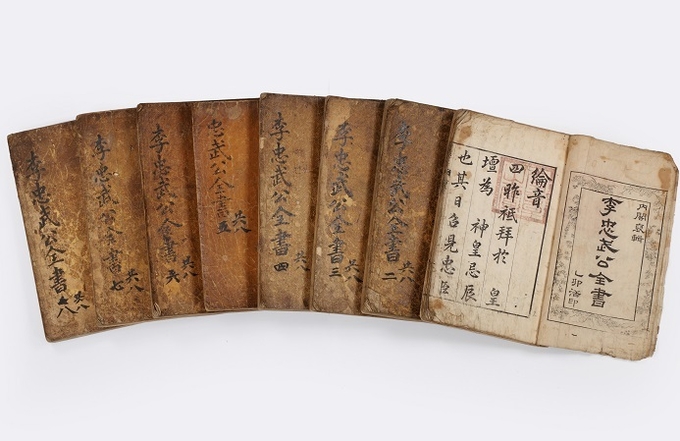 內閣裒輯
李忠武公全書
乙卯活印
綸音
四 昨祗拜於 皇
壇為 神皇忌辰
也其日召見忠臣
李忠武公全書 二 共八
李忠武公全書 三 共八
李忠武公全書 四 共八
忠武公全書 五 共八
李忠武公全書 六 共八
李忠武公全書 七 共八
李忠武公全書 八 共八